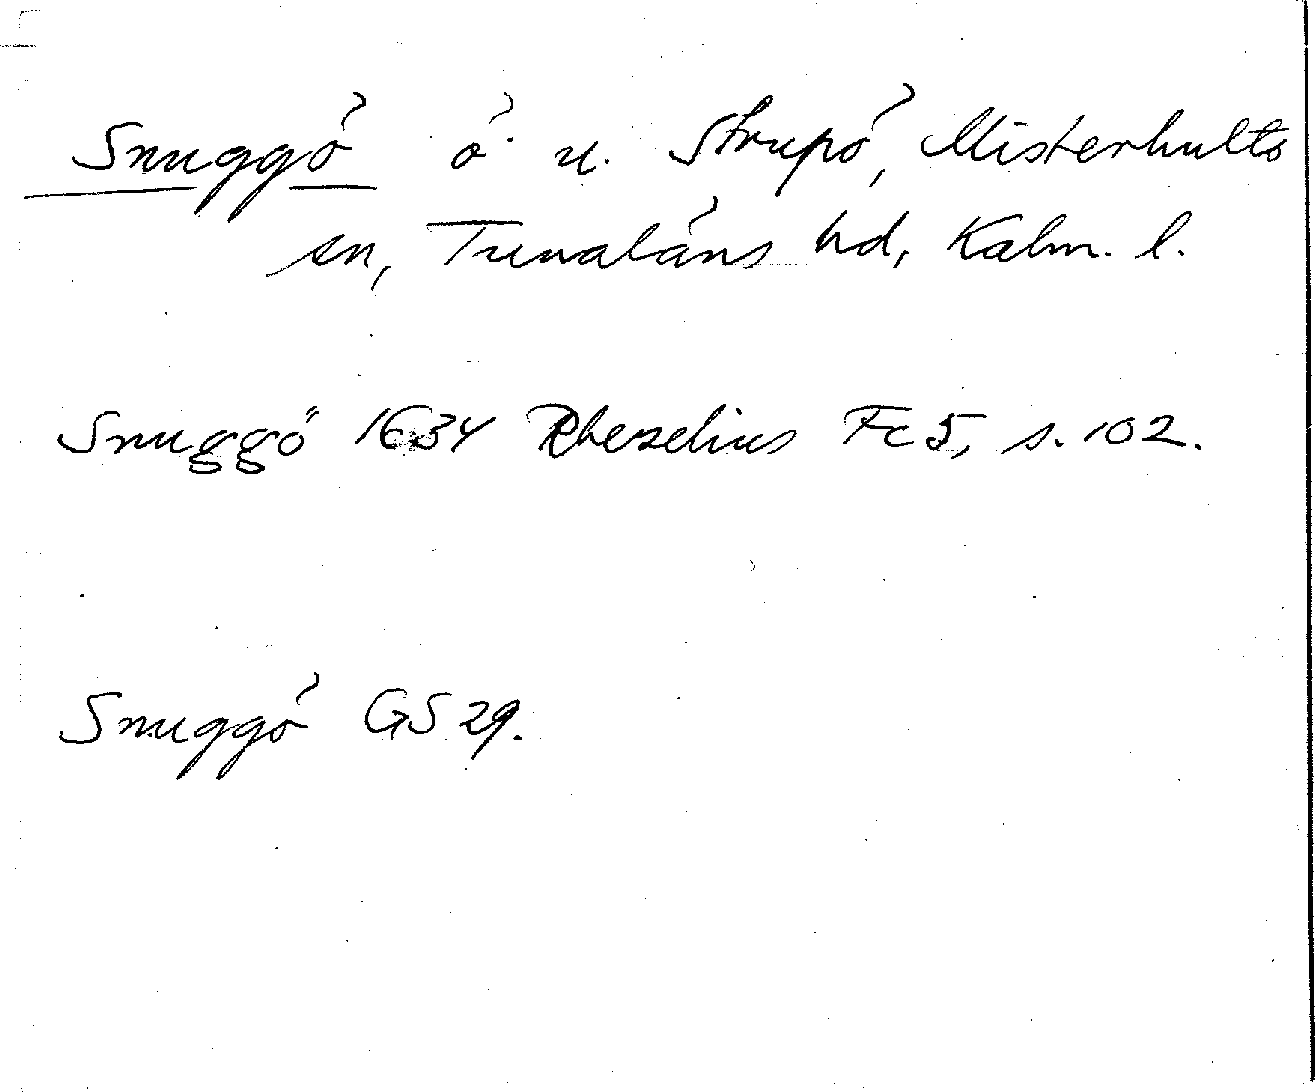 Snuggö ö u. Strupö, Misterhults
sn, Tunaläns hd, Kalm. l.
Snuggö 1634 Rhezelius Fc5, s. 102.
Snuggö GS 29.